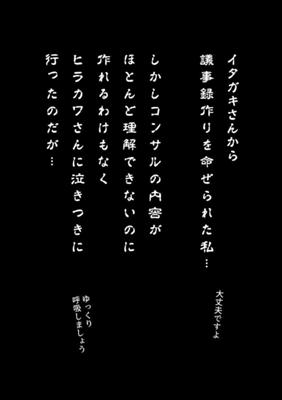 イタガキさんから
議事録作りを命ぜられた私…
大丈夫ですよ
しかしコンサルの内容が
ほとんど理解できないのに
作れるわけもなく
ヒラカワさんに泣きつきに
行ったのだが…
ゆっくり
呼吸しましょう